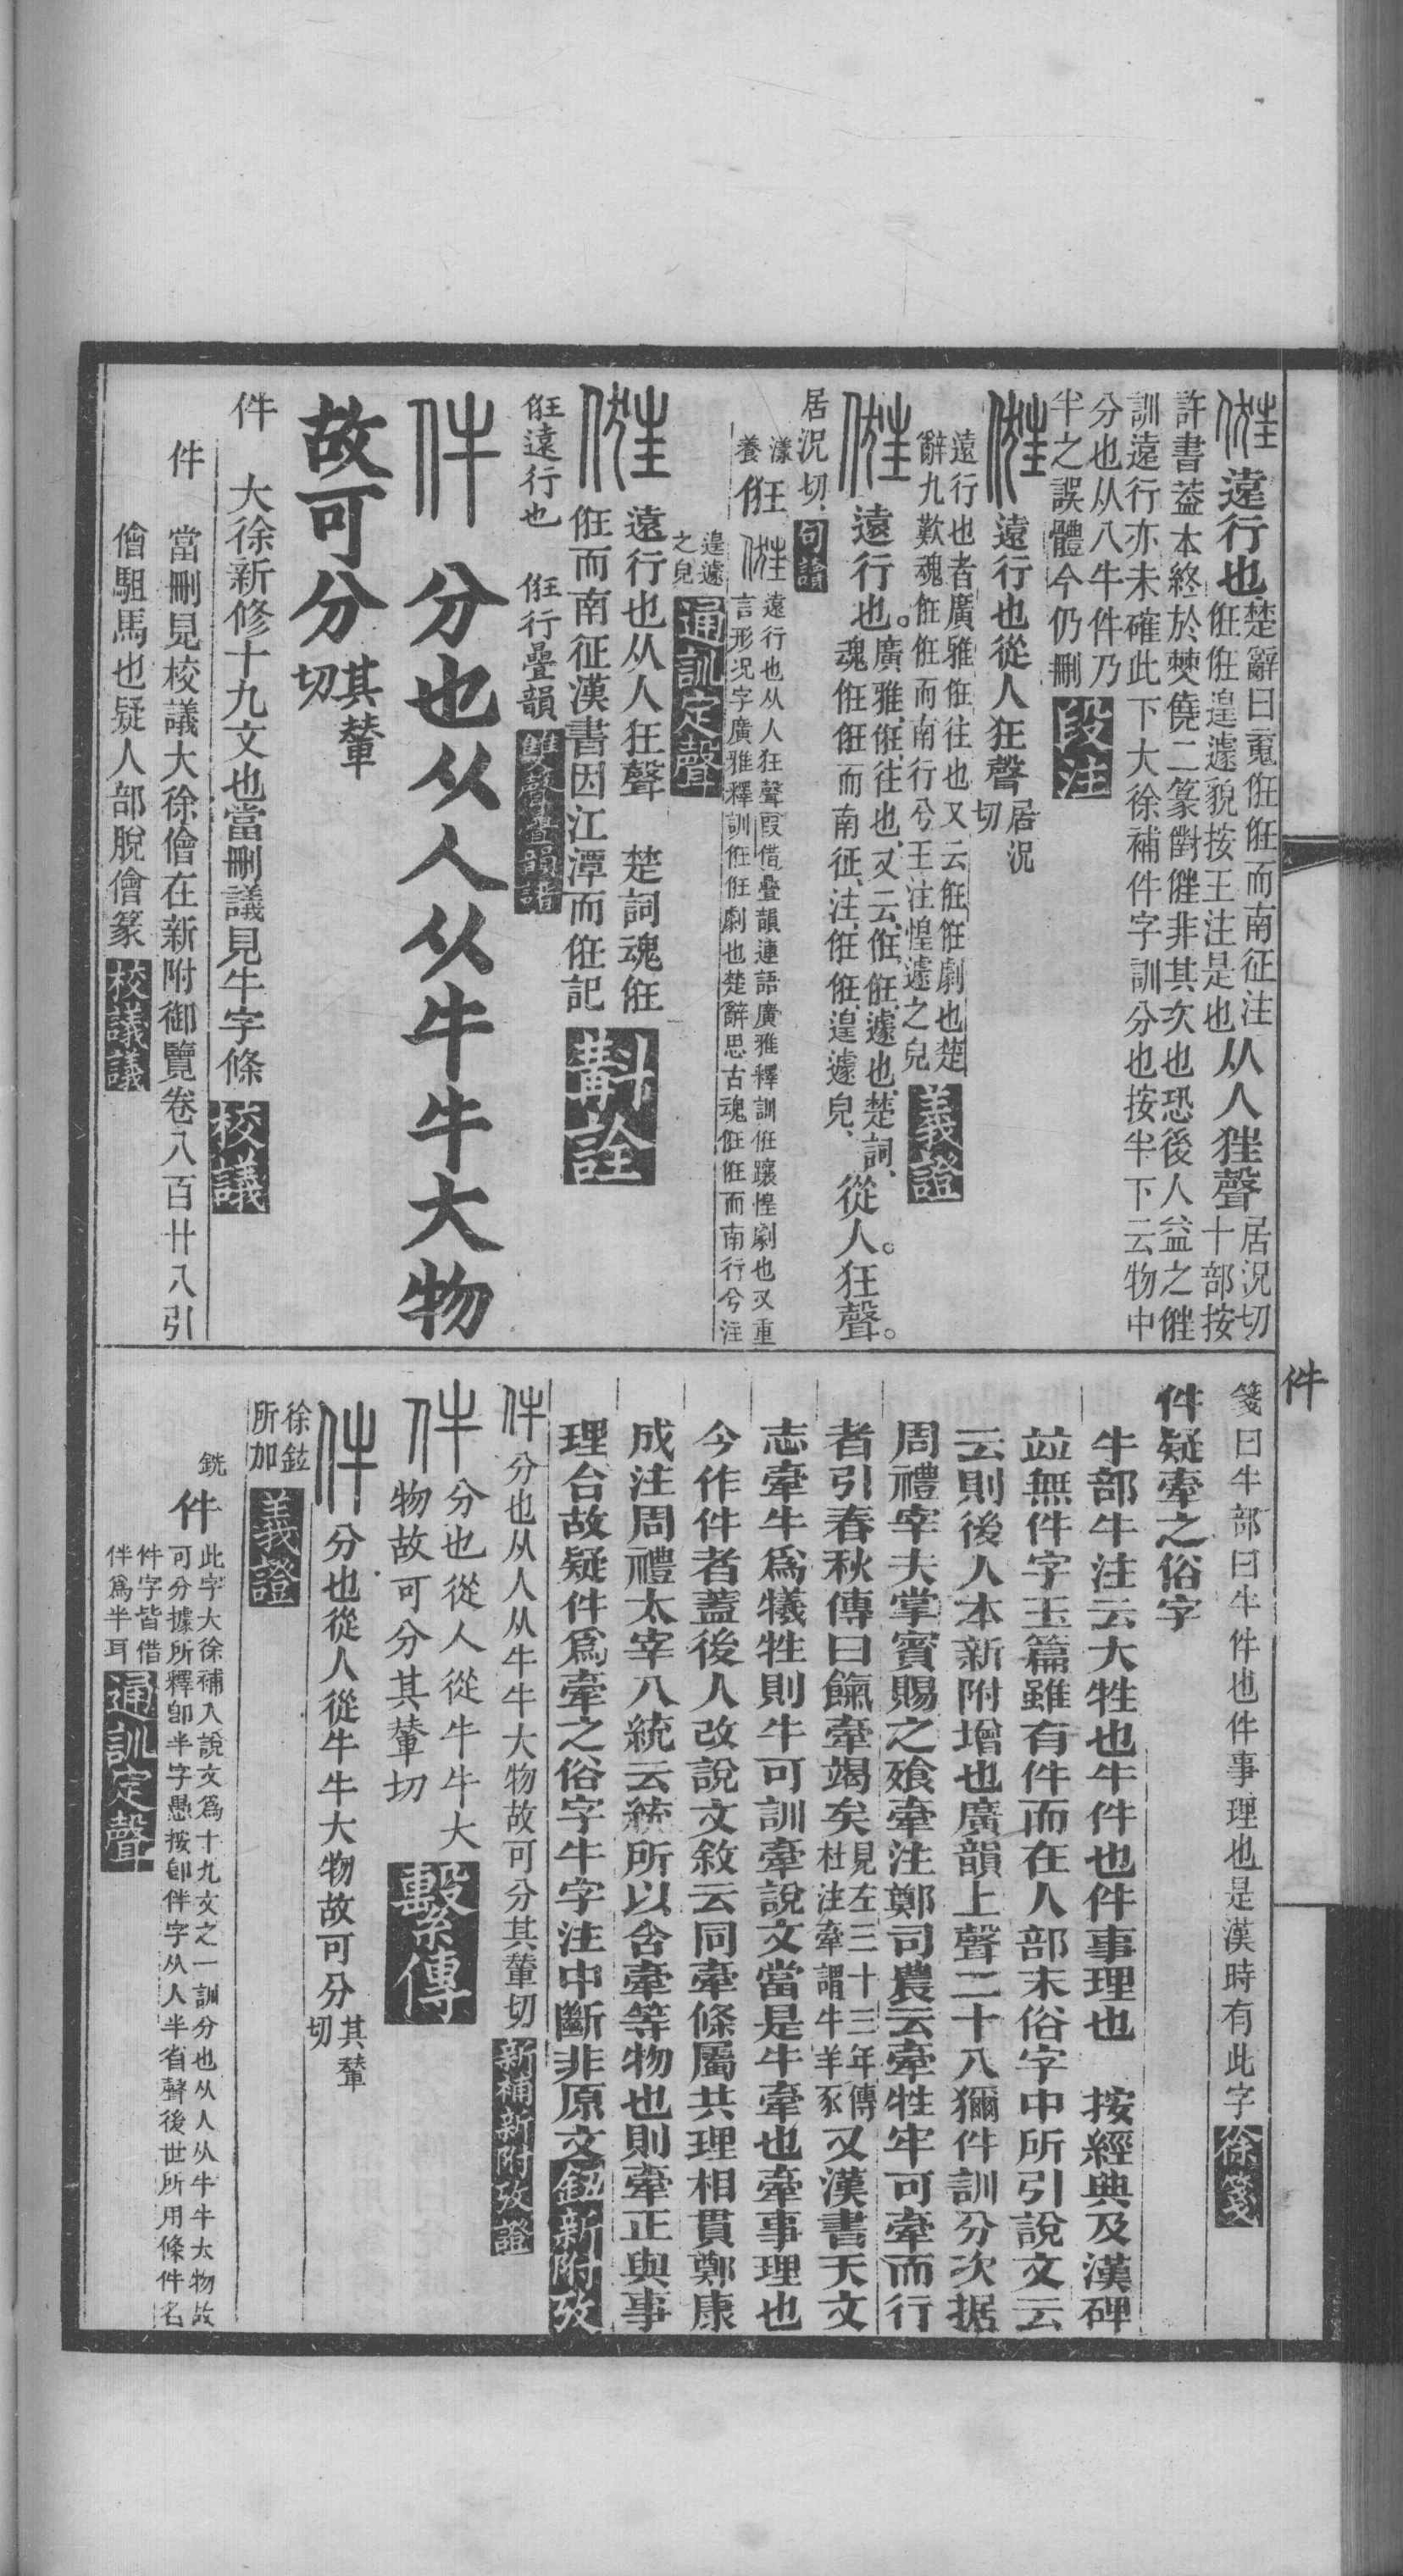 𢓯遠行也楚辭曰䰟俇俇而南征注
俇俇遑遽貌按王注是也从人狂聲居況切十部按
許書葢本終於僰僥二篆㒔𠈃非其次也恐後人益之𠈃
訓遠行亦未確此下大徐補件字訓分也按半下云物中
分也从八牛件乃
半之誤體今仍刪段注
遠行也從人狂聲居況切
遠行也者廣雅俇往也又云俇俇劇也楚
辭九歎魂俇俇而南行兮王注惶遽之皃義證
遠行也。廣雅俇、往也、又云、俇俇、遽也、楚詞、
魂俇俇而南征、注、俇俇、遑遽皃、從人。狂聲。
居況切、句讀
養漾俇遠行也从人狂聲叚借疊韻連語廣雅釋訓俇躟惶劇也又重
言形況字廣雅釋訓俇俇劇也楚辭思古魂俇俇而南行兮注
遑遽之皃通訓定聲
遠行也从人狂聲　楚詞魂俇
俇而南征漢書因江潭而俇記斠詮
俇遠行也　俇行疊韻雙聲疊韻譜
件分也从人从牛牛大物
故可分其輦切
件　大徐新修十九文也當刪議見牛字條校議
件　當刪見校議大徐儈在新附御覽卷八百廿八引
儈駔馬也疑人部脫儈篆校議議
件
箋曰牛部曰牛件也件事理也是漢時有此字徐箋
件疑牽之俗字
牛部牛注云大牲也牛件也件事理也　按經典及漢碑
竝無件字玉篇雖有件而在人部末俗字中所引說文云
云則後人本新附增也廣韻上聲二十八獮件訓分次据
周禮宰夫掌賓賜之飧牽注鄭司農云牽牲牢可牽而行
者引春秋傳曰餼牽竭矣見左三十三年傳杜注牽謂牛羊豕又漢書天文
志牽牛爲犧牲則牛可訓牽說文當是牛牽也牽事理也
今作件者蓋後人改說文敘云同牽條屬共理相貫鄭康
成注周禮太宰八統云統所以合牽等物也則牽正與事
理合故疑件爲牽之俗字牛字注中斷非原文鈕新附攷
件分也从人从牛牛大物故可分其輦切新補新附攷證
件分也從人從牛牛大
物故可分其輦切繫傳
件分也從人從牛牛大物故可分其輦切
徐鉉所加義證
銑件此字大徐補入說文爲十九文之一訓分也从人从牛牛大物故
可分據所釋卽半字愚按卽伴字从人半省聲後世所用條件名
件字皆借
伴爲半耳通訓定聲